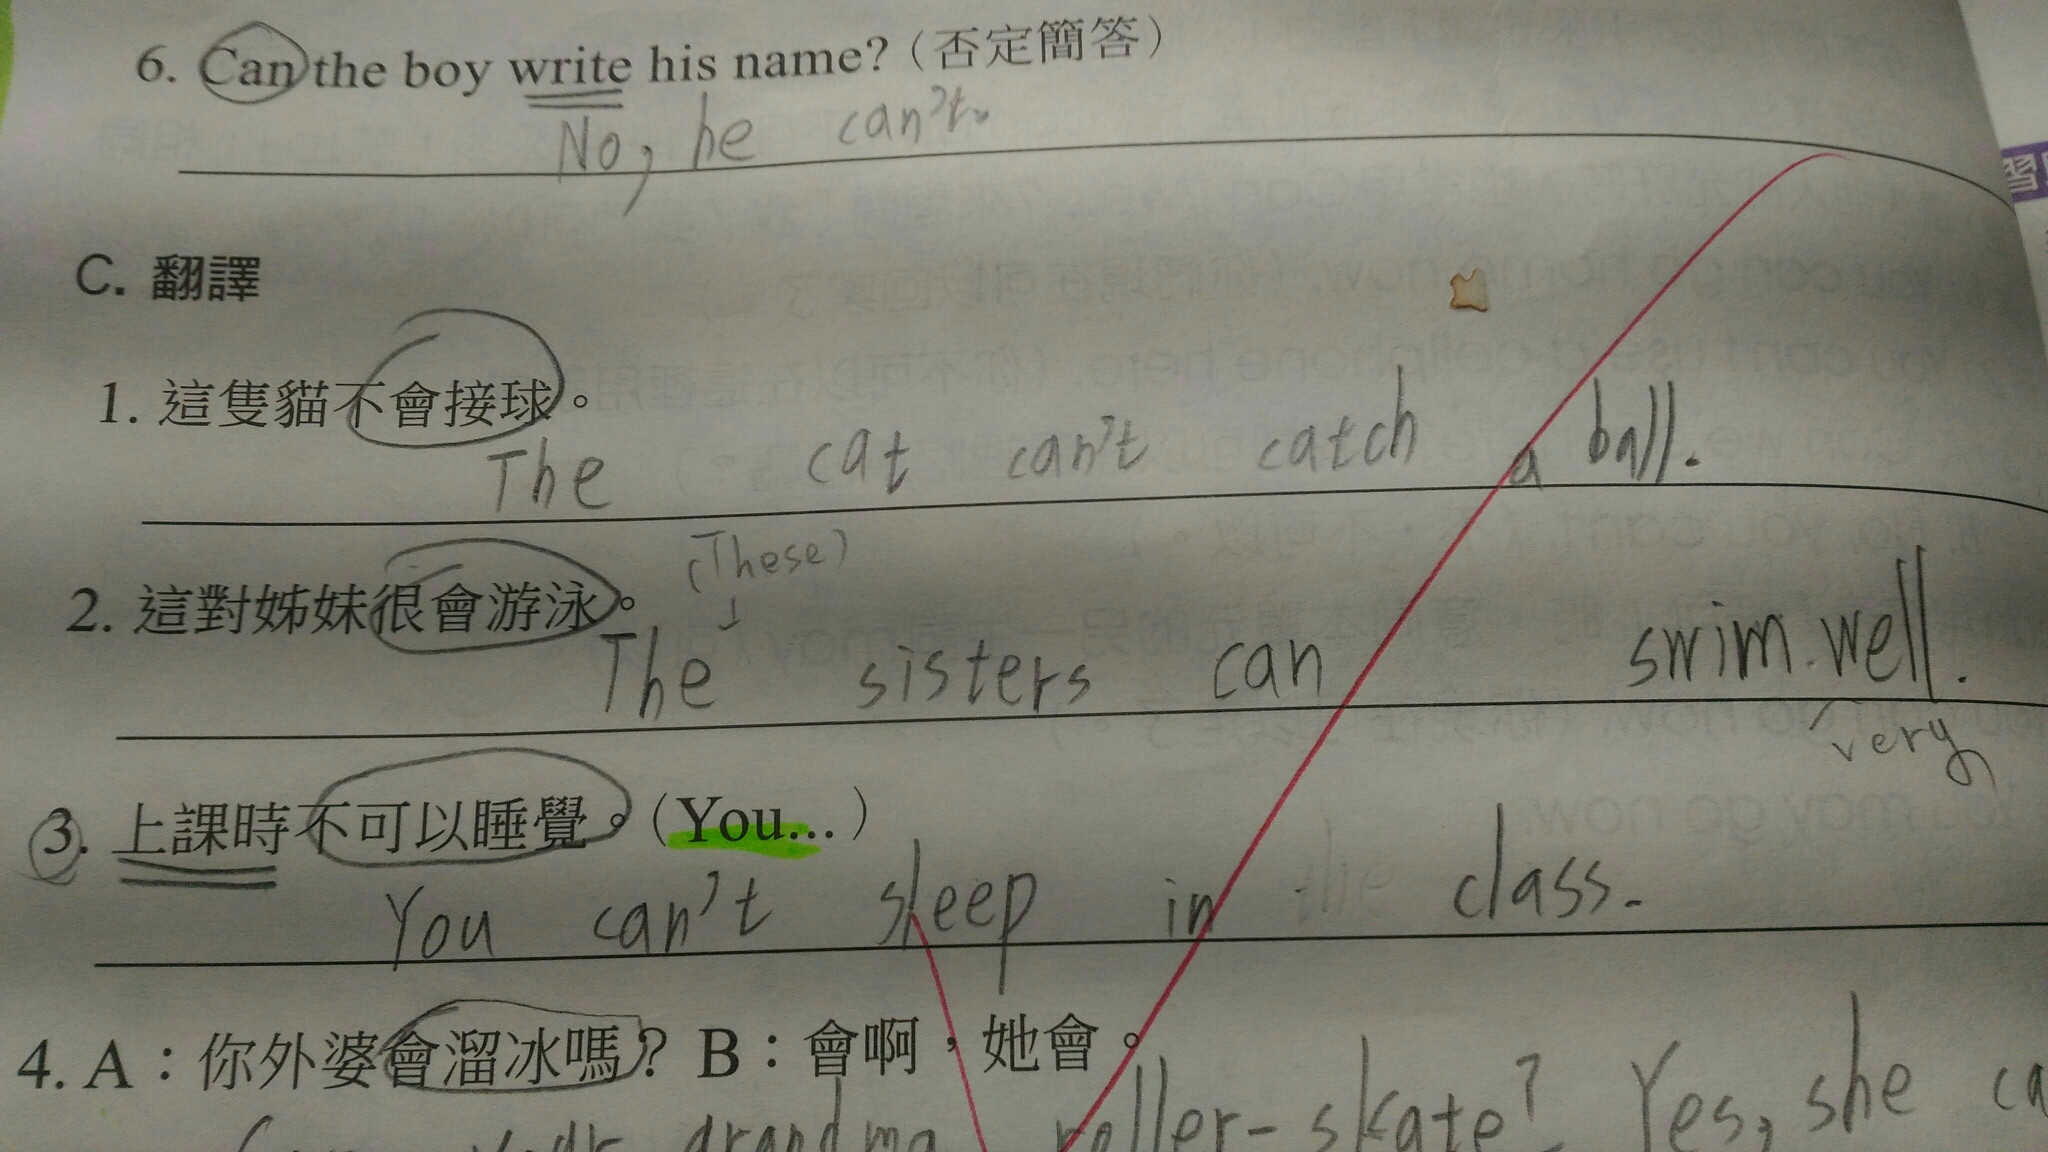 6. Can the boy write his name?(否定簡答)
No, he can't.
C. 翻譯
1. 這隻貓不會接球。
The cat can't catch a ball.
2. 這對姊妹很會游泳。
(These)
The sisters can swim well.
very
3. 上課時不可以睡覺。(You...)
You can't sleep in the class.
4. A：你外婆會溜冰嗎? B：會啊，她會。
your grandma roller-skate? Yes, she ca
習